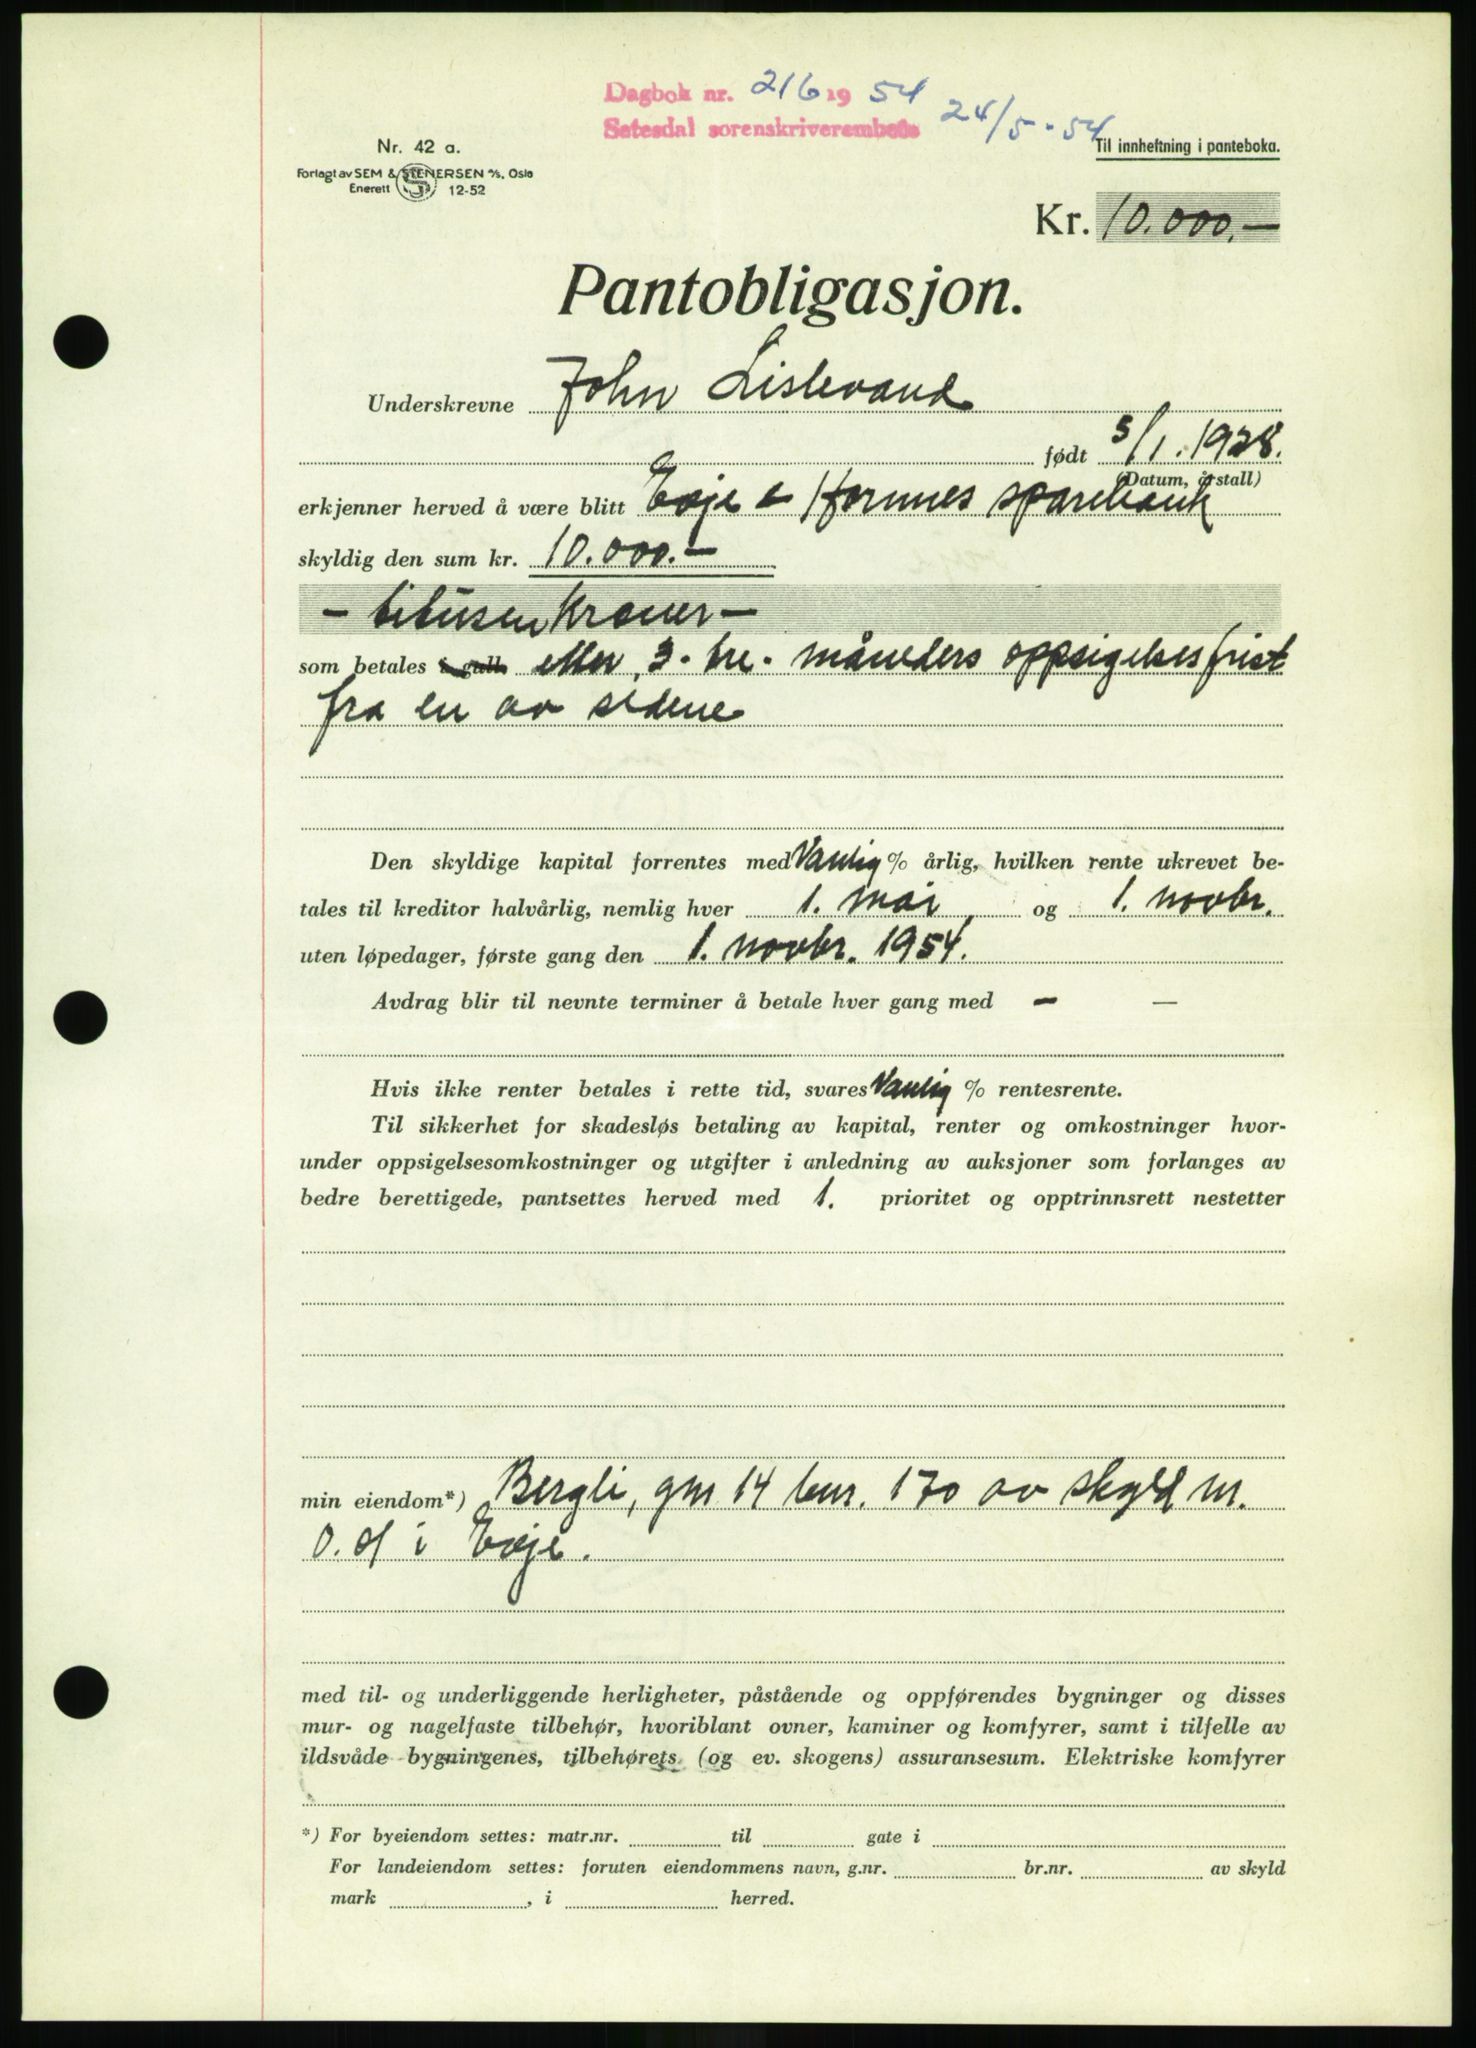 Dagbok nr. 216 19 54 24/5-54
Setesdal sorenskriverembete
Til innheftning i panteboka.
Nr. 42 a.
Forlagt av SEM & STENERSEN A/S, Oslo
Enerett S 12-52
Kr. 10.000.—
Pantobligasjon.
Underskrevne John Lislevand
født 5/1. 1928.
(Datum, årstall)
erkjenner herved å være blitt Evje & Hornnes sparebank
skyldig den sum kr. 10.000.—
— titusen kroner —
som betales i gull etter 3. tre. måneders oppsigelsesfrist
fra en av sidene
Den skyldige kapital forrentes med Vanlig % årlig, hvilken rente ukrevet be-
tales til kreditor halvårlig, nemlig hver 1. mai og 1. novbr.
uten løpedager, første gang den 1. novbr. 1954.
Avdrag blir til nevnte terminer å betale hver gang med — —
Hvis ikke renter betales i rette tid, svares Vanlig % rentesrente.
Til sikkerhet for skadesløs betaling av kapital, renter og omkostninger hvor-
under oppsigelsesomkostninger og utgifter i anledning av auksjoner som forlanges av
bedre berettigede, pantsettes herved med 1. prioritet og opptrinnsrett nestetter
min eiendom*) Bergli, gnr 14 bnr. 170 av skyld m.
0.01 i Evje.
med til- og underliggende herligheter, påstående og oppførendes bygninger og disses
mur- og nagelfaste tilbehør, hvoriblant ovner, kaminer og komfyrer, samt i tilfelle av
ildsvåde bygningenes, tilbehørets (og ev. skogens) assuransesum. Elektriske komfyrer
*) For byeiendom settes: matr.nr. til gate i
For landeiendom settes: foruten eiendommens navn, g.nr. br.nr. av skyld
mark , i herred.